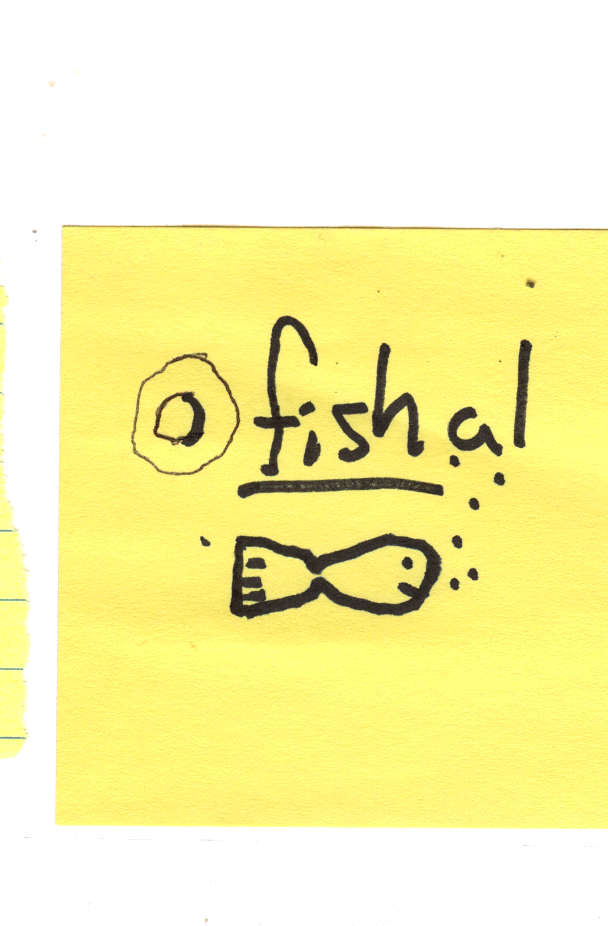 O fish al